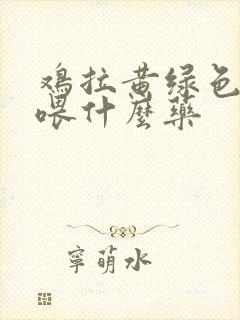 鸡拉黄绿色
喂什麽藥
寧萌水